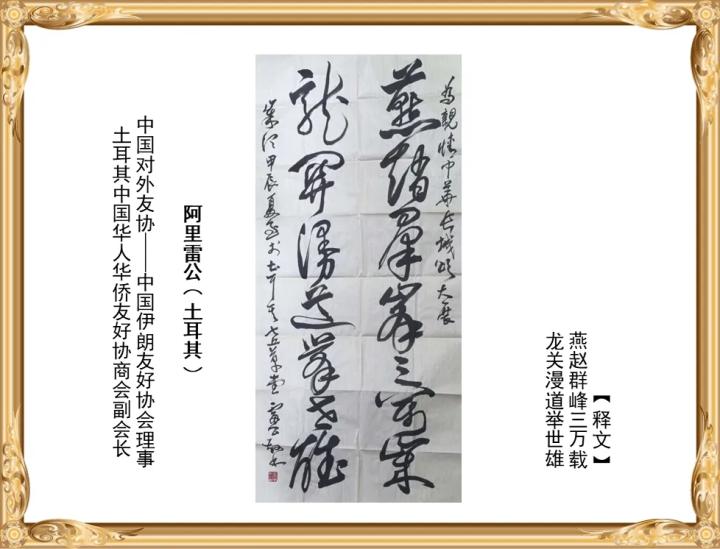 为亲情中华长城颂大展
燕赵群峰三万载
龙关漫道举世雄
甲辰夏
【释文】
燕赵群峰三万载
龙关漫道举世雄
阿里雷公（土耳其）
中国对外友协——中国伊朗友好协会理事
土耳其中国华人华侨友好协商会副会长